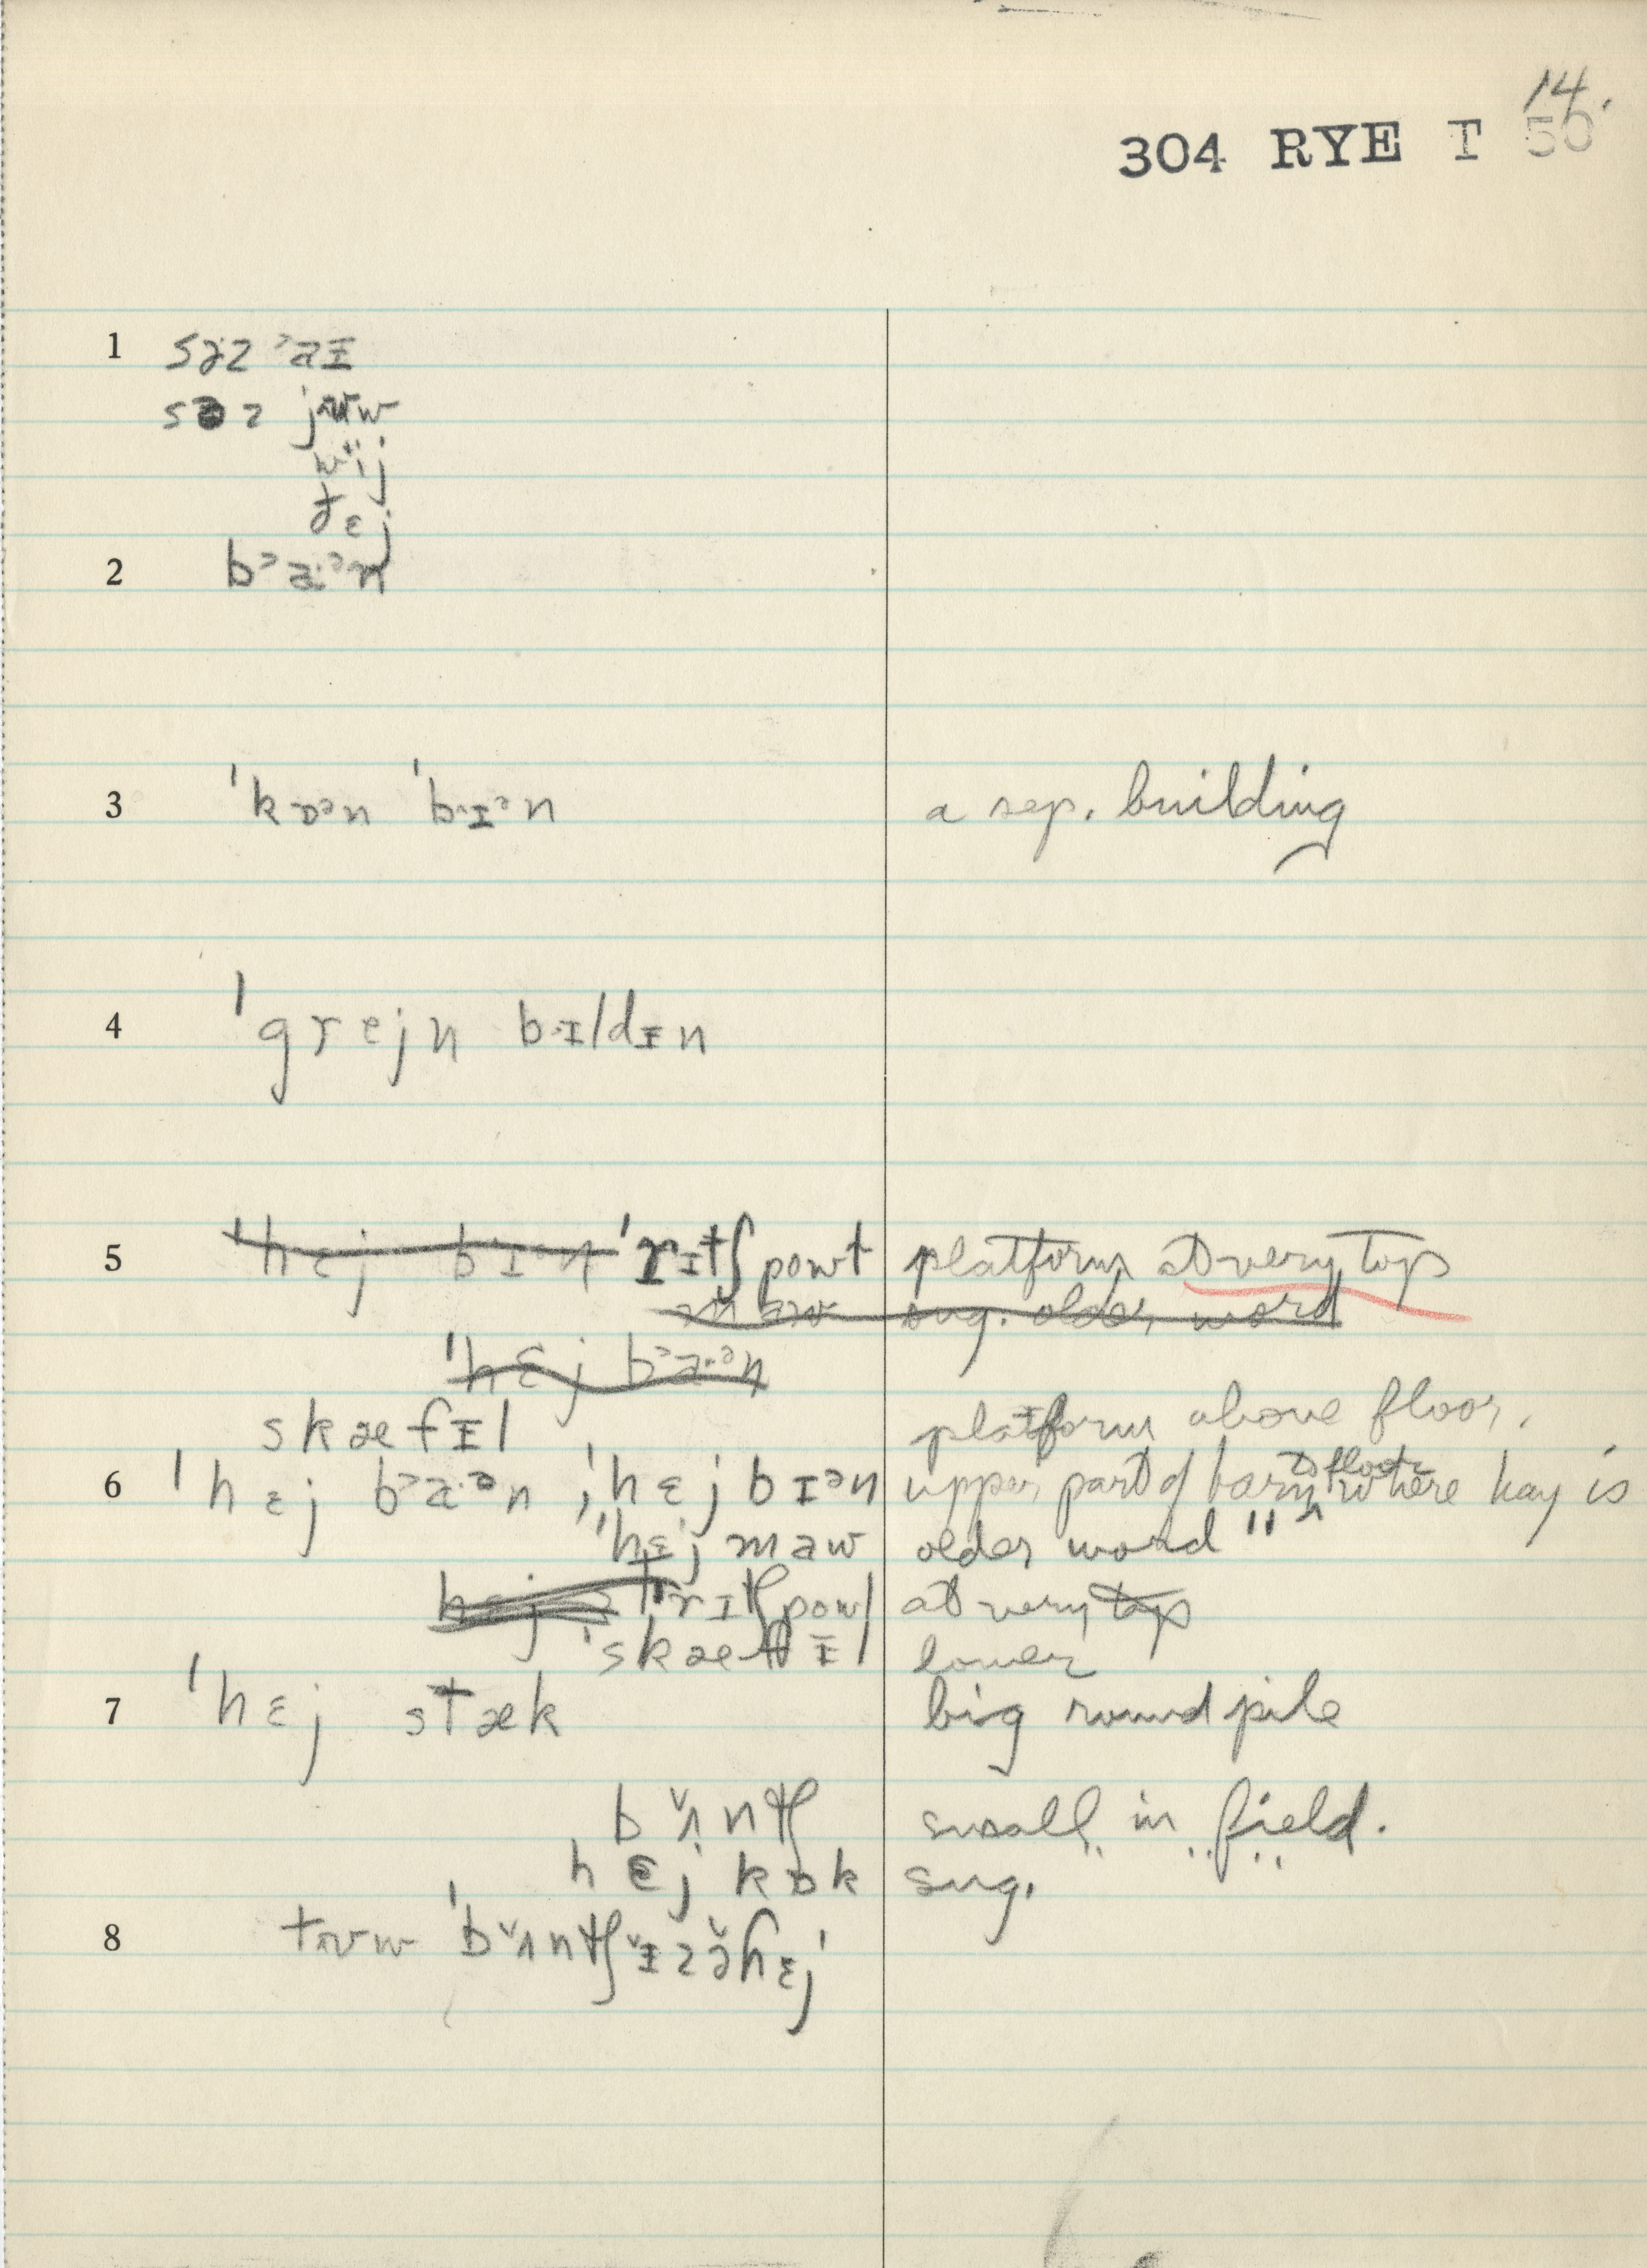 14.
304 RYE T 50
1 səz ᵓaɪ
səz jʊw
wij
ðɛj
2 bᵓa·ᵊn
3 ˈkɒᵊn ˈbɪᵊn a sep. building
4 ˈgrejn bɪldɪn
5 ˈhɛj bɪᵊn ˈrɪtʃ powt platform at very top
maw sug. older word
ˈhɛj bᵓa·ᵊn
skæfɪl platform above floor.
6 ˈhɛj bᵓa·ᵊn ; ˈhɛj bɪᵊn upper part of barn to floor where hay is
ˈhɛj maw older word "
hɛj rɪtʃpowl at very top
ˈskæffɪl lower
7 ˈhɛj stæk big round pile
bʌntʃ small in field.
hɛj kɒk sug.
8 tʊw ˈbʌntʃɪz ə hɛj